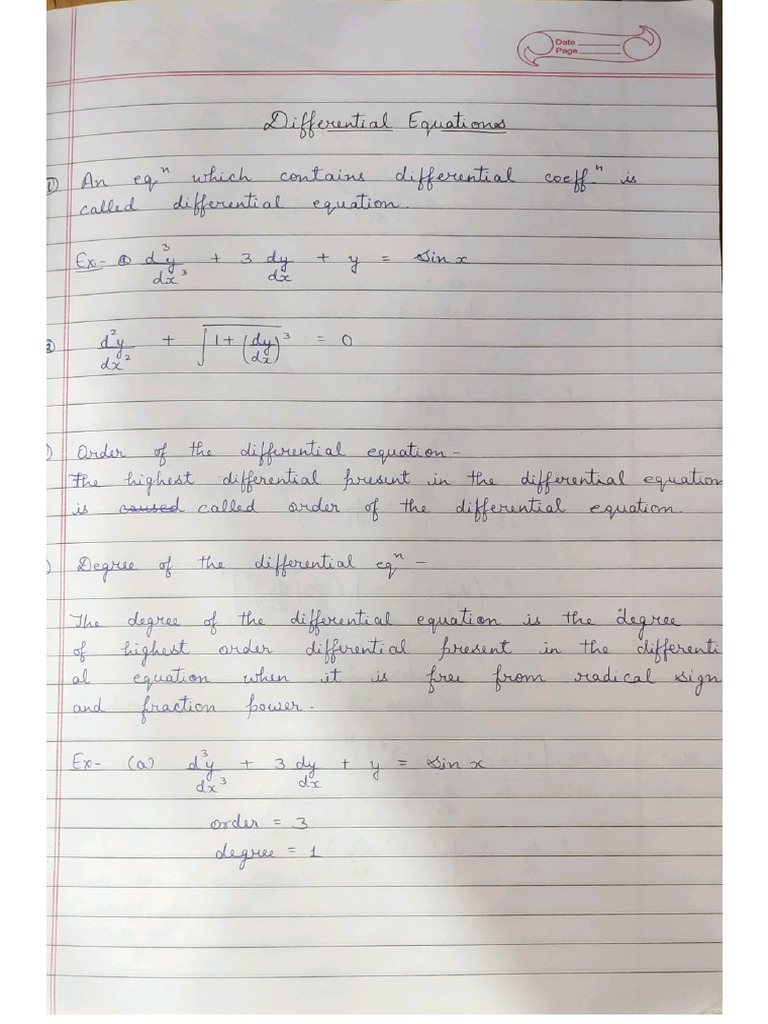 Date
Page
Differential Equations
1) An eqⁿ which contains differential coeffⁿ is
called differential equation.
Ex- ① d³y/dx³ + 3 dy/dx + y = sin x
② d²y/dx² + √(1 + (dy/dx)³) = 0
) Order of the differential equation –
The highest differential present in the differential equation
is ~~caused~~ called order of the differential equation.
) Degree of the differential eqⁿ –
The degree of the differential equation is the degree
of highest order differential present in the differenti
al equation when it is free from radical sign
and fraction power.
Ex- (a) d³y/dx³ + 3 dy/dx + y = sin x
order = 3
degree = 1